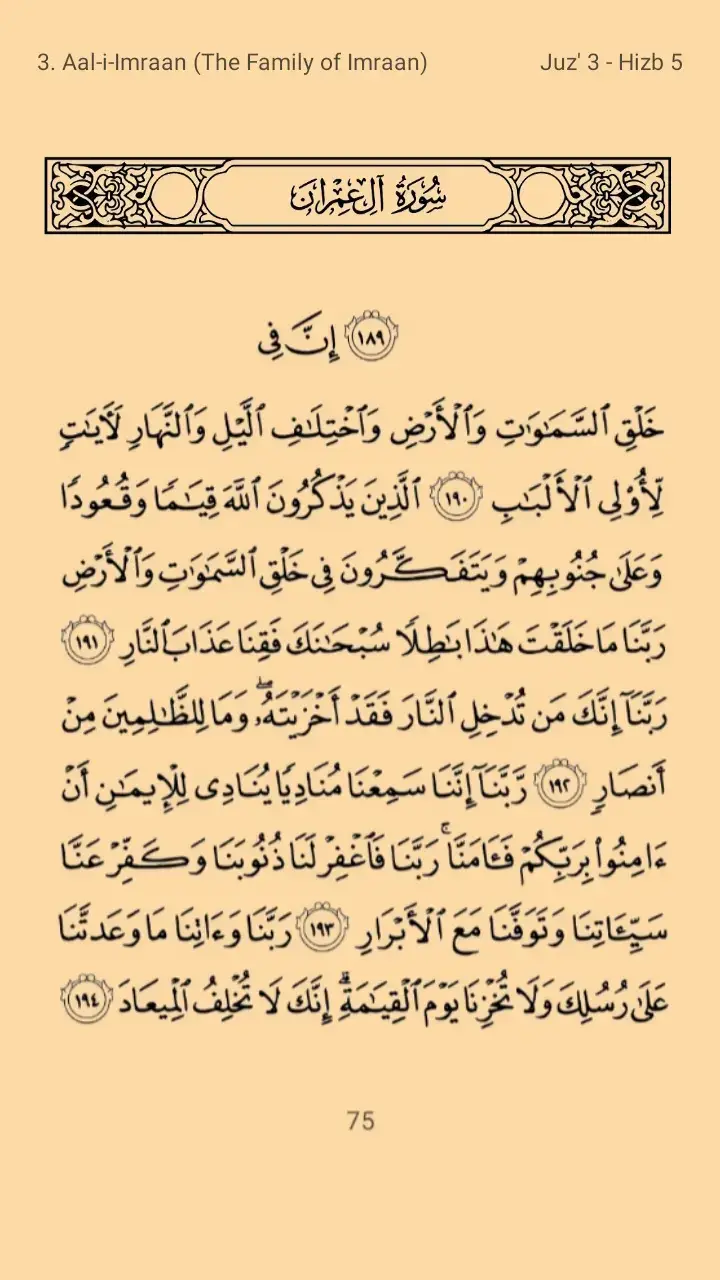 3. Aal-i-Imraan (The Family of Imraan) Juz' 3 - Hizb 5
سُورَةُ آلِ عِمْرَانَ
١٨٩ إِنَّ فِي
خَلْقِ ٱلسَّمَٰوَٰتِ وَٱلْأَرْضِ وَٱخْتِلَٰفِ ٱلَّيْلِ وَٱلنَّهَارِ لَأٓيَٰتٍ
لِّأُو۟لِى ٱلْأَلْبَٰبِ ١٩٠ ٱلَّذِينَ يَذْكُرُونَ ٱللَّهَ قِيَٰمًا وَقُعُودًا
وَعَلَىٰ جُنُوبِهِمْ وَيَتَفَكَّرُونَ فِى خَلْقِ ٱلسَّمَٰوَٰتِ وَٱلْأَرْضِ
رَبَّنَا مَا خَلَقْتَ هَٰذَا بَٰطِلًا سُبْحَٰنَكَ فَقِنَا عَذَابَ ٱلنَّارِ ١٩١
رَبَّنَآ إِنَّكَ مَن تُدْخِلِ ٱلنَّارَ فَقَدْ أَخْزَيْتَهُۥۖ وَمَا لِلظَّٰلِمِينَ مِنْ
أَنصَارٍ ١٩٢ رَّبَّنَآ إِنَّنَا سَمِعْنَا مُنَادِيًا يُنَادِى لِلْإِيمَٰنِ أَنْ
ءَامِنُوا۟ بِرَبِّكُمْ فَـَٔامَنَّاۚ رَبَّنَا فَٱغْفِرْ لَنَا ذُنُوبَنَا وَكَفِّرْ عَنَّا
سَيِّـَٔاتِنَا وَتَوَفَّنَا مَعَ ٱلْأَبْرَارِ ١٩٣ رَبَّنَا وَءَاتِنَا مَا وَعَدتَّنَا
عَلَىٰ رُسُلِكَ وَلَا تُخْزِنَا يَوْمَ ٱلْقِيَٰمَةِۗ إِنَّكَ لَا تُخْلِفُ ٱلْمِيعَادَ ١٩٤
75